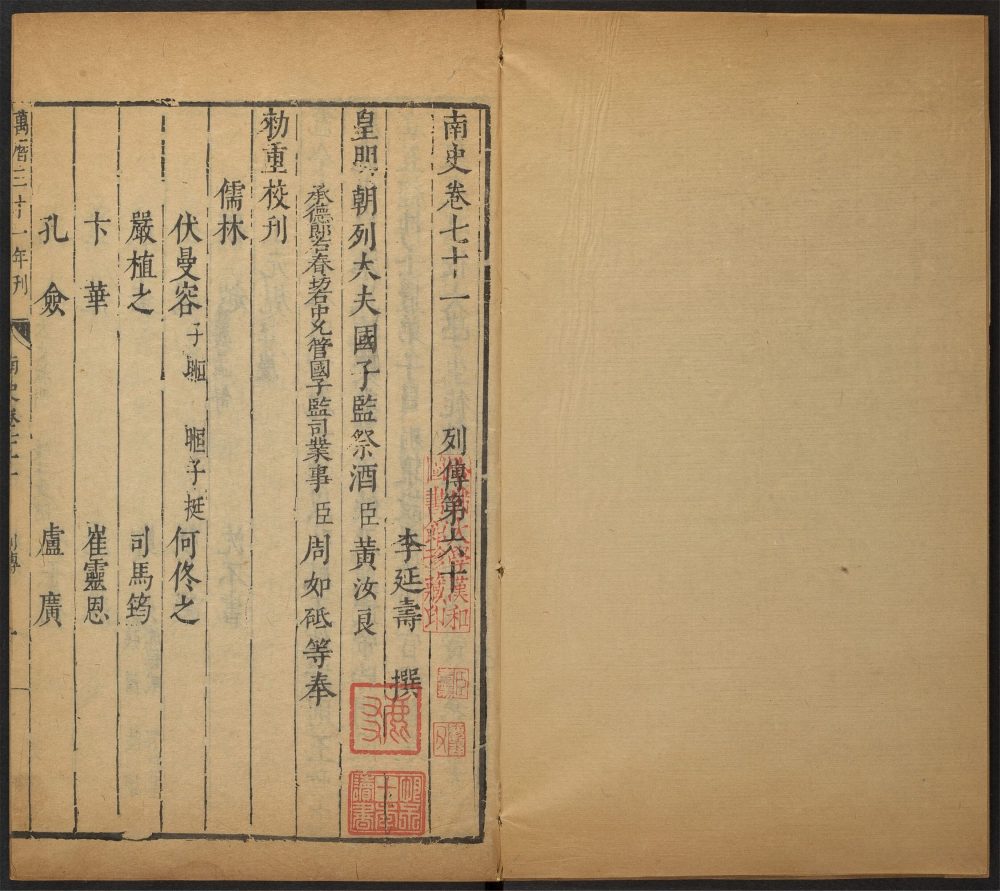 南史卷七十一 列傳第六十一
李延壽 撰
皇明朝列大夫國子監祭酒臣黃汝良
承德郎右春坊右中允管國子監司業事臣周如砥等奉
勑重校刊
儒林
伏曼容 子暅 暅子挺 何佟之
嚴植之 司馬筠
卞華 崔靈恩
孔僉 盧廣
萬曆三十一年刊 南史卷七十一 列傳 一